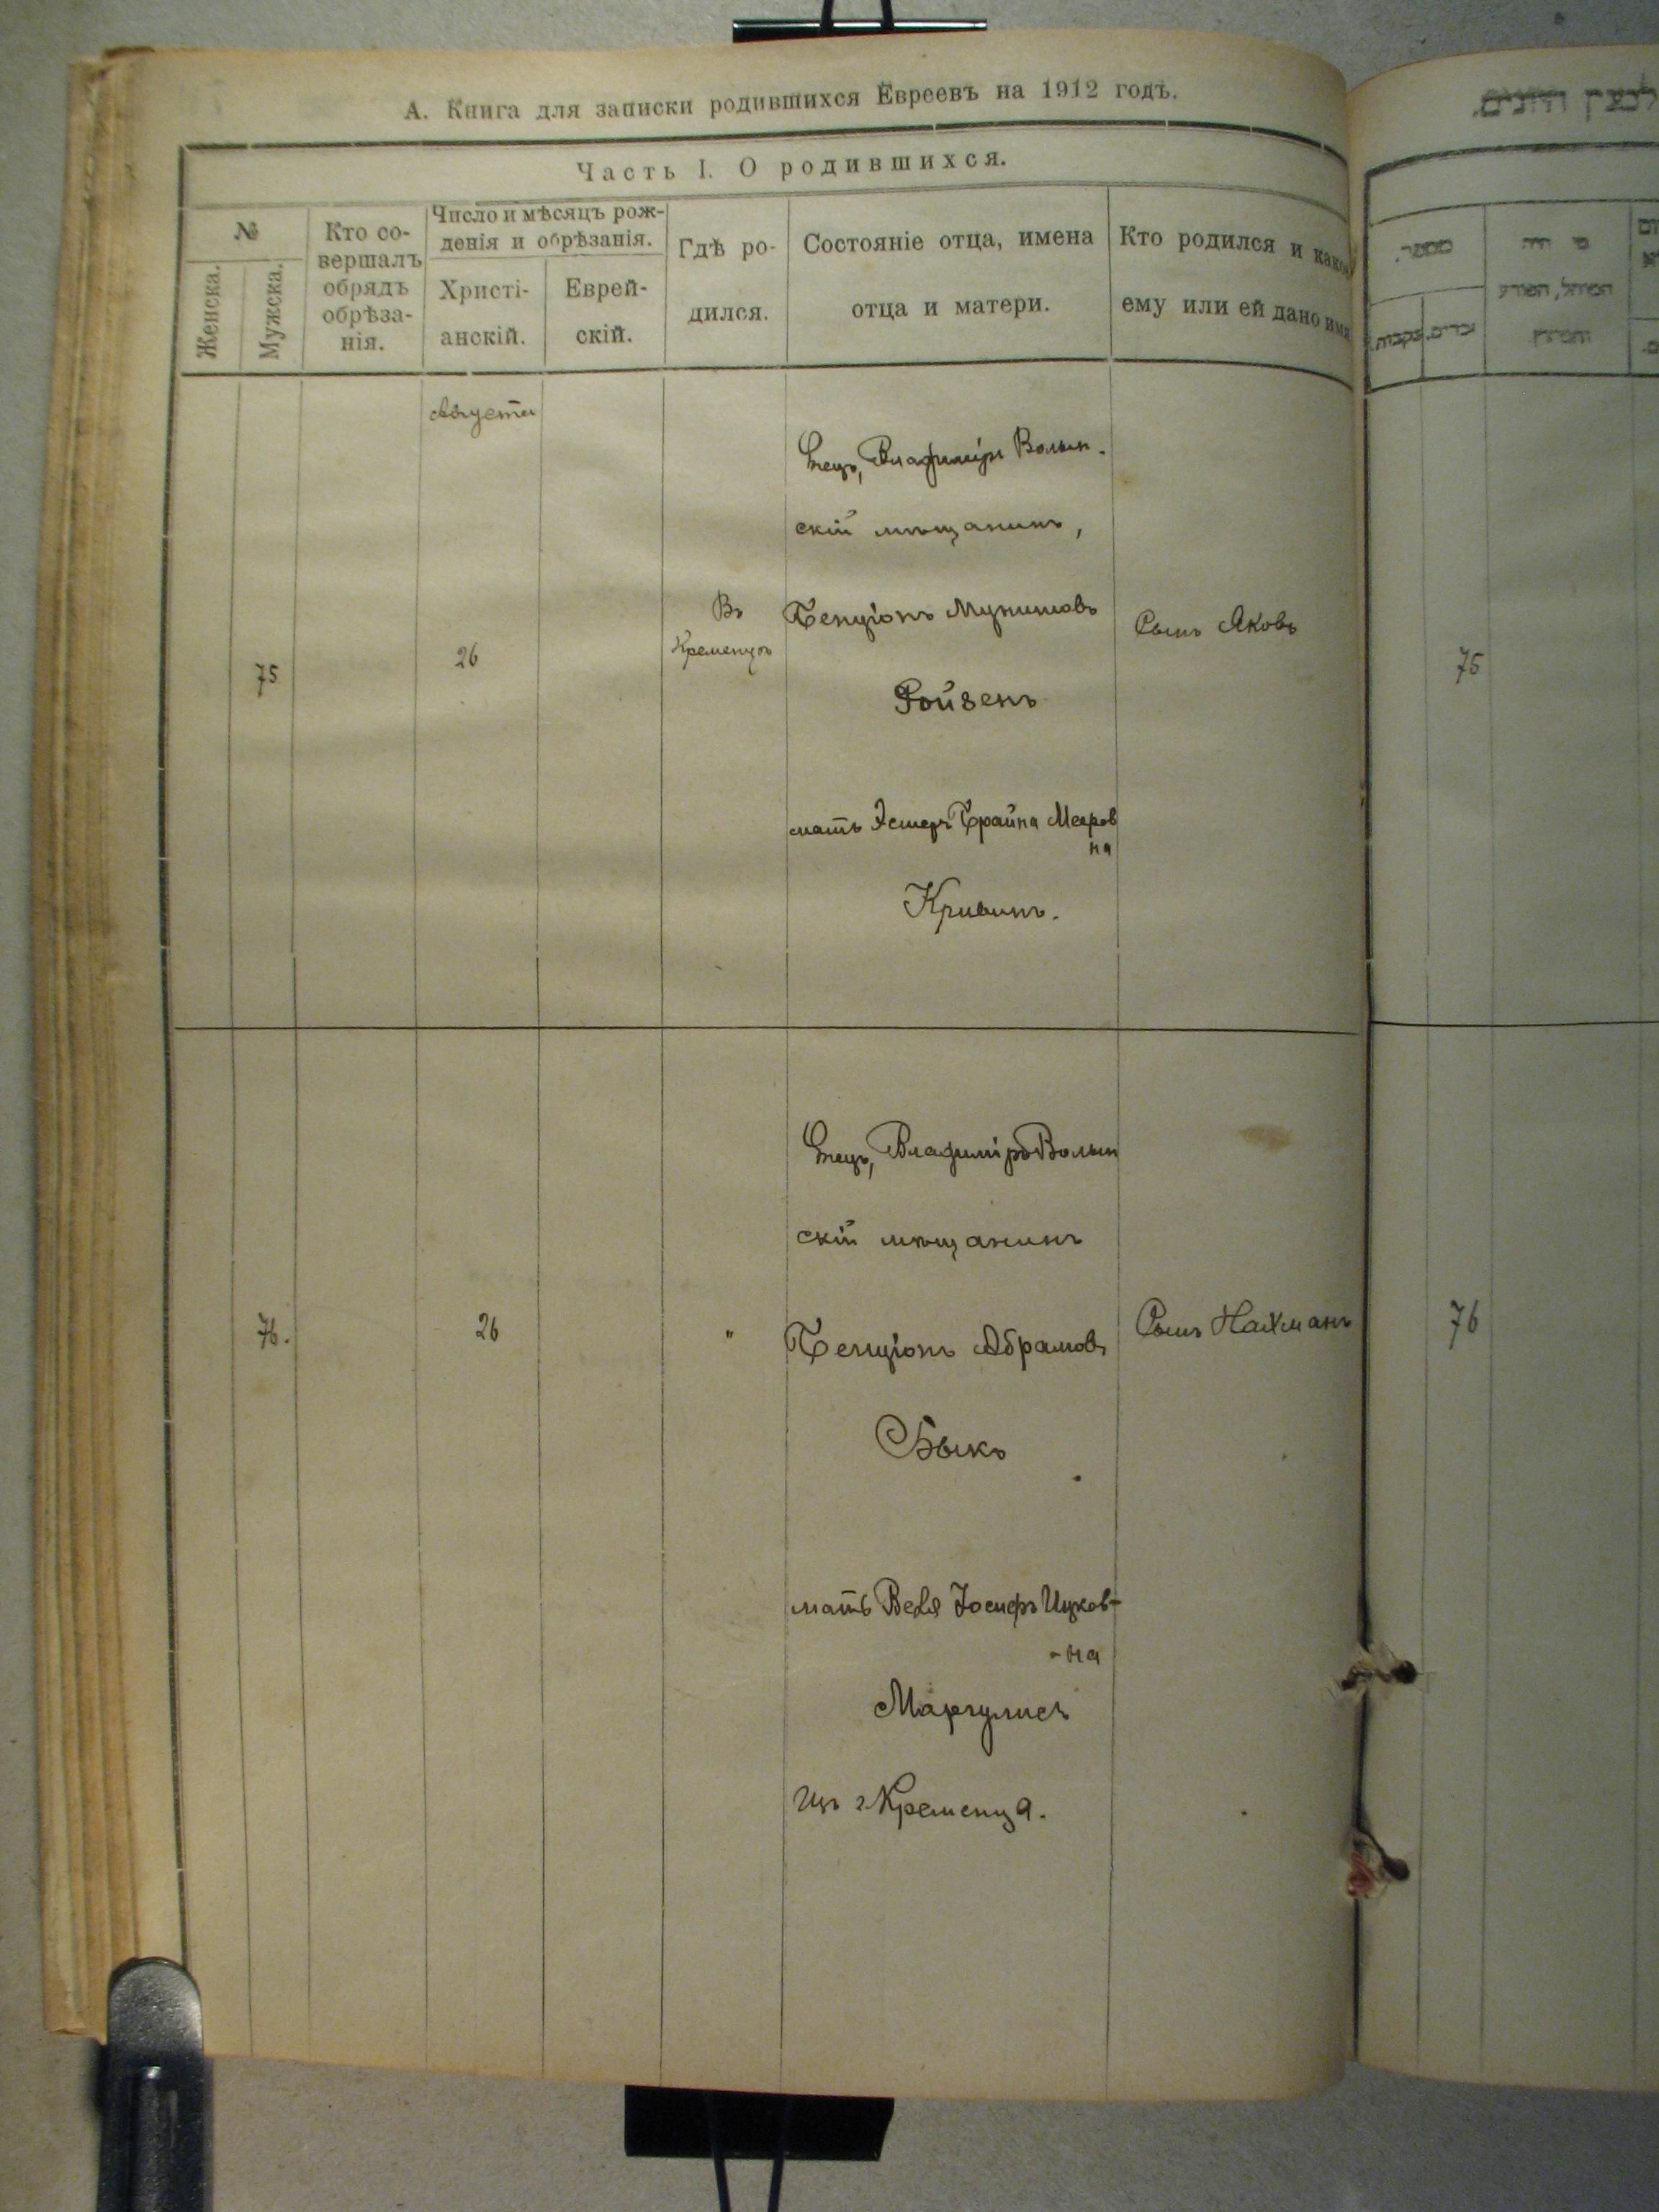 А. Книга для записки родившихся Евреевъ на 1912 годъ.
Часть I. О родившихся.
№
Женска.
Мужска.
Кто со-
вершалъ
обрядъ
обрѣза-
нія.
Число и мѣсяцъ рож-
денія и обрѣзанія.
Христі-
анскій.
Еврей-
скій.
Гдѣ ро-
дился.
Состояніе отца, имена
отца и матери.
Кто родился и какое
ему или ей дано имя
Августа
75
26
Въ
Кременцѣ
Отецъ, Владиміръ Волын-
скій мѣщанинъ,
Бенціонъ Мунишовъ
Ройзенъ
мать Эстеръ Брайна Мееров
на
Кривинъ.
Сынъ Яковъ
76.
26
"
Отецъ, Владиміръ Волын
скій мѣщанинъ
Бенціонъ Абрамовъ
Быкъ
мать Веля Іосифъ Ицков-
-на
Маргулисъ
Изъ г. Кременца.
Сынъ Нахманъ
מספר.
זכרים.
נקבות.
מי היה
המוהל,
75
76